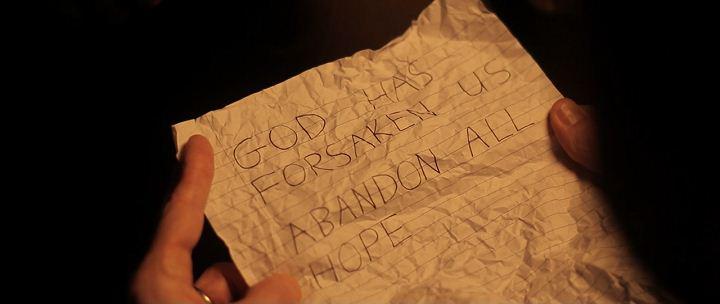 GOD HAS
FORSAKEN US
ABANDON ALL
HOPE